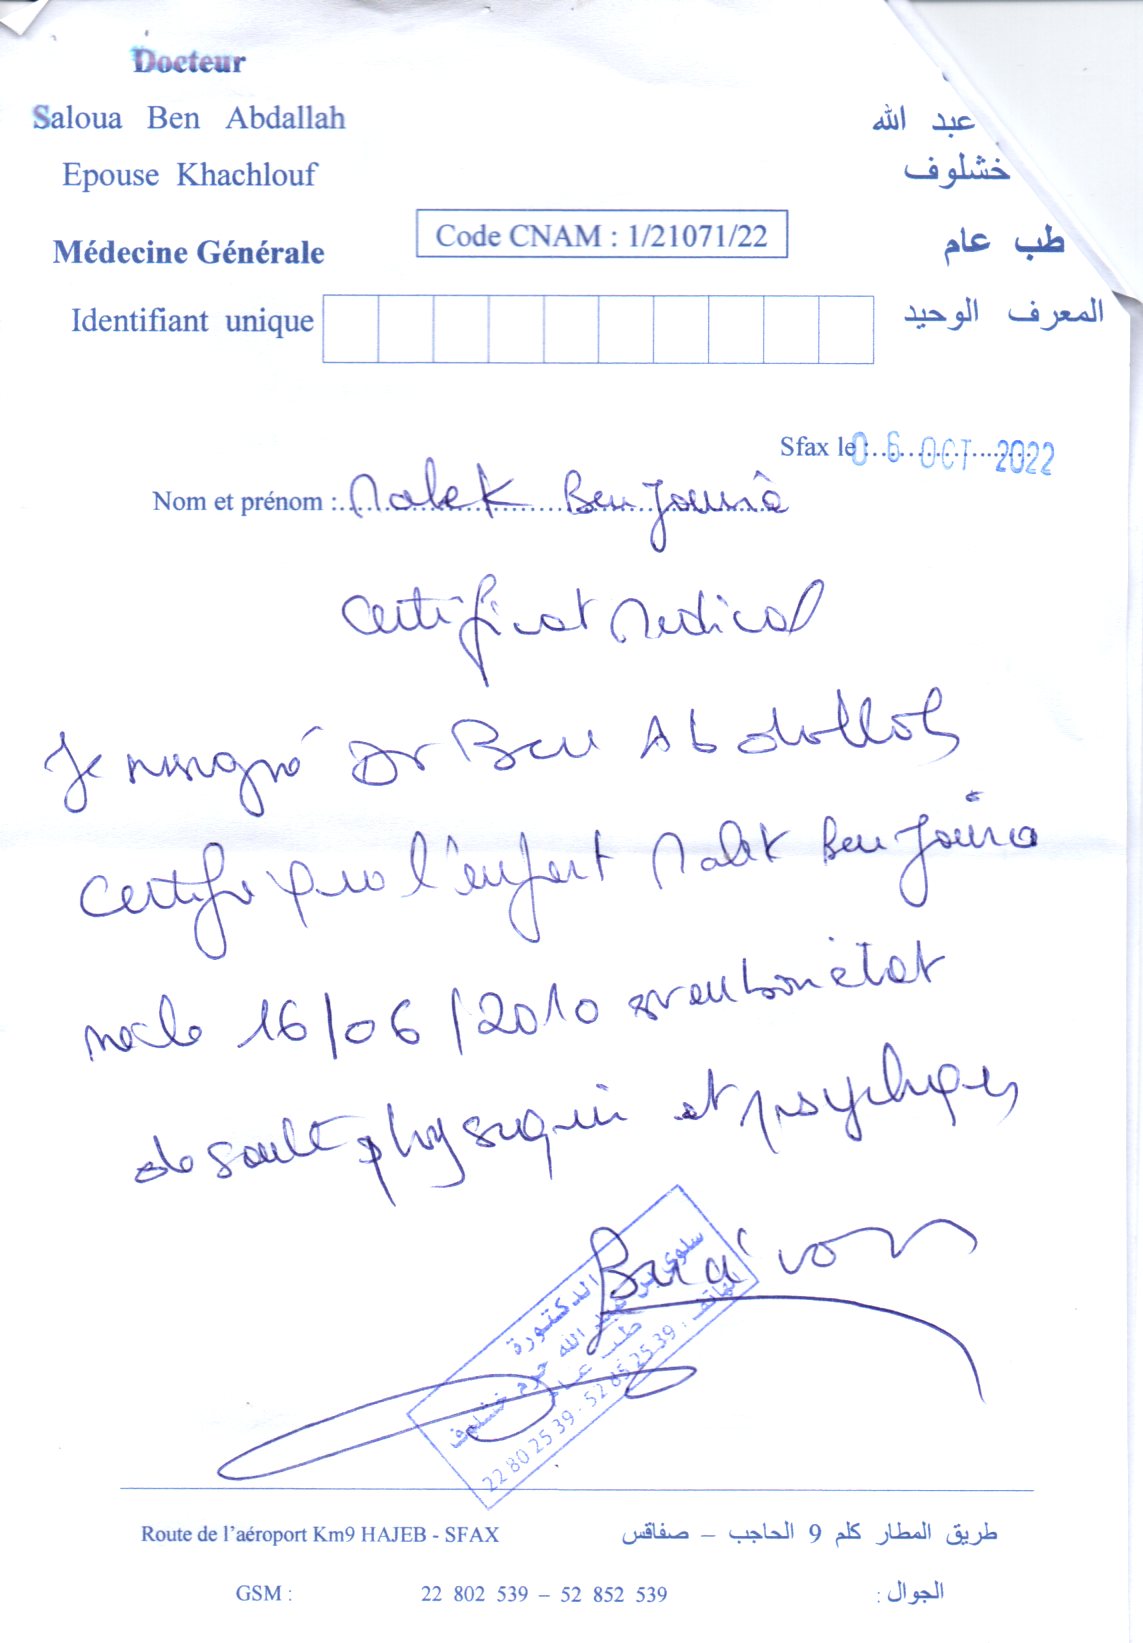 Docteur
Saloua Ben Abdallah
Epouse Khachlouf
Médecine Générale
عبد الله
خشلوف
طب عام
Code CNAM : 1/21071/22
Identifiant unique
المعرف الوحيد
Sfax le : 06 OCT 2022
Nom et prénom : Malek Ben Jouira
Certificat Medical
Je sousigné Dr Ben Abdallah
certifie que l'enfant Malek Ben Jouira
né le 16/06/2010 est en bon état
de santé physique et psychique
الدكتورة
سلوى بن عبد الله حرم خشلوف
طب عام
الهاتف : 52 85 25 39 - 22 80 25 39
Route de l'aéroport Km9 HAJEB - SFAX
طريق المطار كلم 9 الحاجب – صفاقس
GSM : 22 802 539 – 52 852 539 الجوال :